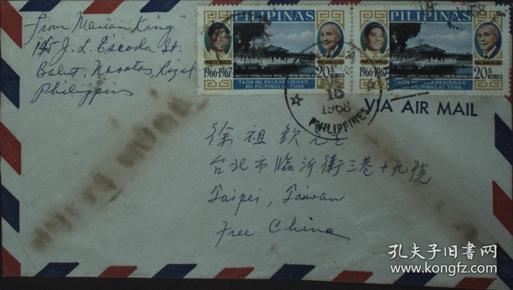 From Marian King
145 J. L. Escoda St.
Balut, Navotas, Rizal
Philippines
PILIPINAS
1966-1967
TAON NG PAGKAKAIBIGAN
NG PILIPINAS AT TSINA
20s
KOREO
PILIPINAS
1966-1967
TAON NG PAGKAKAIBIGAN
NG PILIPINAS AT TSINA
20s
KOREO
16
1968
PHILIPPINES
1968
VIA AIR MAIL
徐祖
台北市臨沂街三巷十九號
Taipei, Taiwan
Free China
孔夫子旧书网
www.kongfz.com